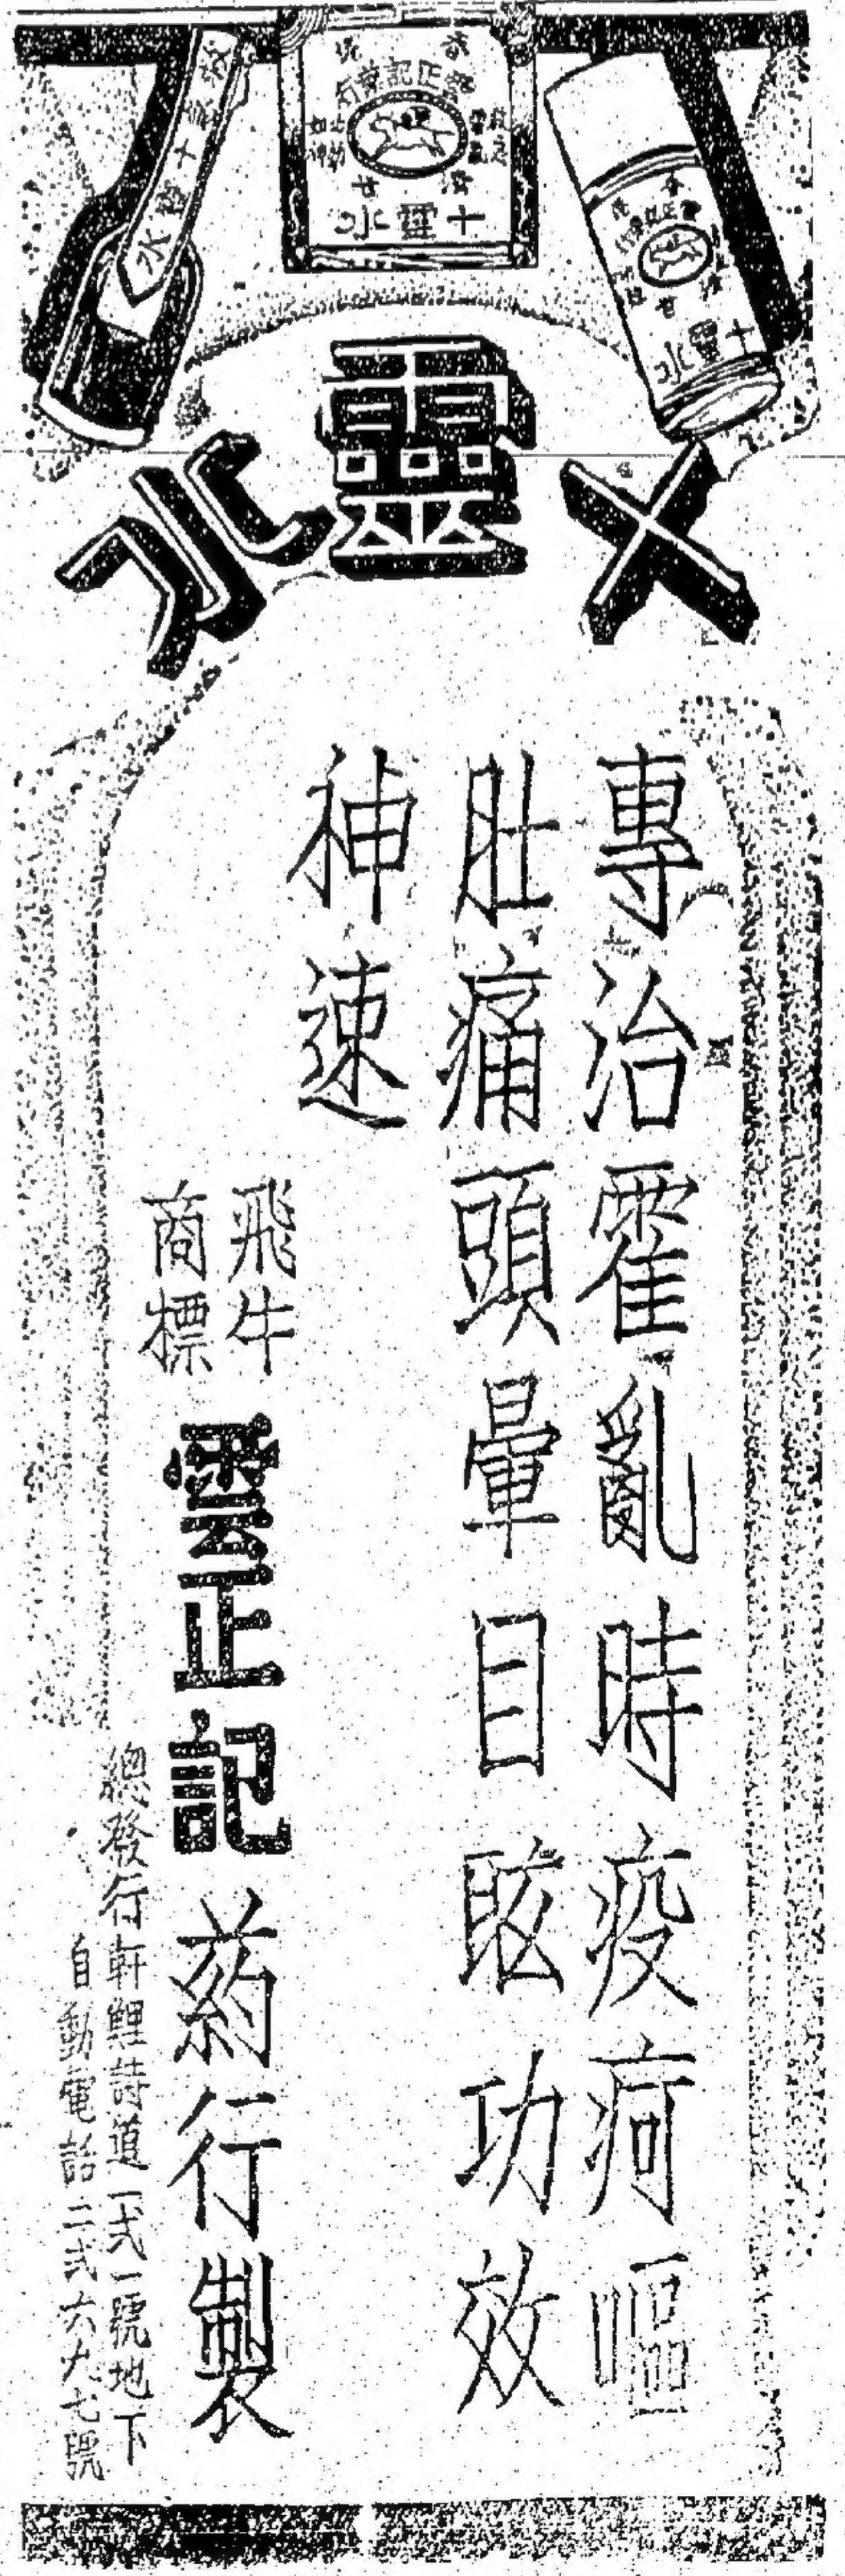 十靈水
十靈水
十靈水
十靈水
專治霍亂時疫疴嘔
肚痛頭暈目眩功效
神速
飛牛
商標
雲正記葯行製
總發行軒鯉詩道一弍一號地下
自動電話二弍六九七號